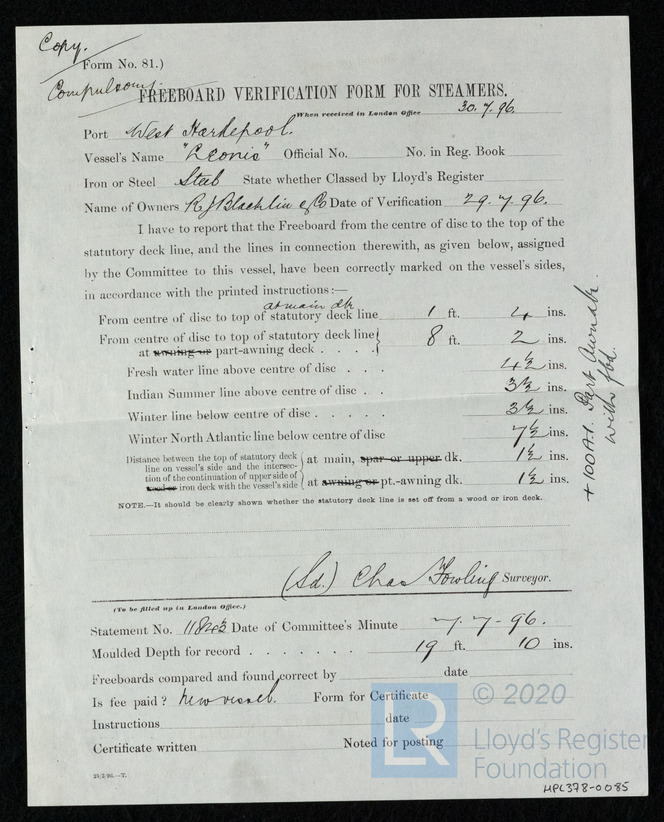 Copy.
Form No. 81.)
Compulsory.
FREEBOARD VERIFICATION FORM FOR STEAMERS.
When received in London Office 30.7.96.
Port West Hartlepool.
Vessel's Name "Leonis" Official No. No. in Reg. Book
Iron or Steel Steel State whether Classed by Lloyd's Register
Name of Owners R J Blacklin & Co Date of Verification 29.7.96.
I have to report that the Freeboard from the centre of disc to the top of the
statutory deck line, and the lines in connection therewith, as given below, assigned
by the Committee to this vessel, have been correctly marked on the vessel's sides,
in accordance with the printed instructions:—
at main dk
From centre of disc to top of statutory deck line 1 ft. 4 ins.
From centre of disc to top of statutory deck line
at awning or part-awning deck . . . . 8 ft. 2 ins.
Fresh water line above centre of disc . . . 4½ ins.
Indian Summer line above centre of disc . . 3½ ins.
Winter line below centre of disc . . . . . 3½ ins.
Winter North Atlantic line below centre of disc 7½ ins.
Distance between the top of statutory deck
line on vessel's side and the intersec-
tion of the continuation of upper side of
wood or iron deck with the vessel's side
at main, spar or upper dk. 1½ ins.
at awning or pt.-awning dk. 1½ ins.
+100A1. Part Awndk.
with fbd.
NOTE.—It should be clearly shown whether the statutory deck line is set off from a wood or iron deck.
(Sd.) Chas Fowling Surveyor.
(To be filled up in London Office.)
Statement No. Date of Committee's Minute 7.7.96.
Moulded Depth for record . . . . . . . 19 ft. 10 ins.
Freeboards compared and found correct by date
Is fee paid? New vessel. Form for Certificate
Instructions date
Certificate written Noted for posting
23/2/96.—T.
© 2020
LR
Lloyd's Register
Foundation
HPL378-0085